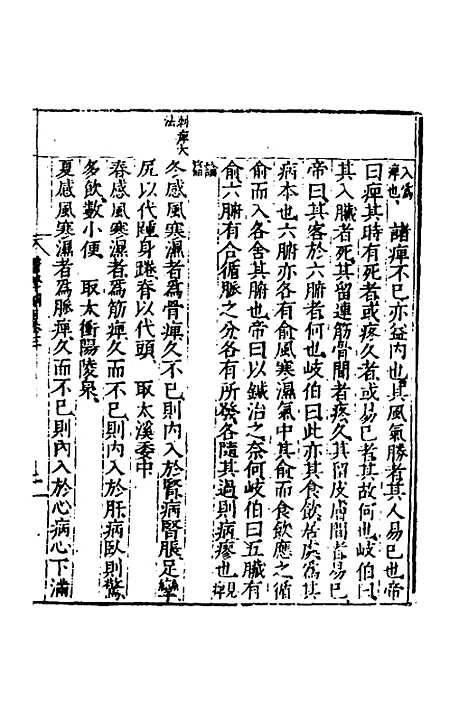 入爲
痺也 諸痺不已亦益内也其風氣勝者其人易已也帝
曰痺其時有死者或疼久者或易已者其故何也岐伯曰
其入臟者死其留連筋骨間者疼久其留皮膚間者易已
帝曰其客於六腑者何也岐伯曰此亦其食飲居處爲其
病本也六腑亦各有俞風寒濕氣中其俞而食飲應之循
俞而入各舍其腑也帝曰以鍼治之奈何岐伯曰五臟有
俞六腑有合循脈之分各有所發各隨其過則病瘳也
論
篇
刺痺大
法
冬感風寒濕者爲骨痺久不已則内入於腎病腎脹足攣
尻以代踵身踡脊以代頭 取太溪委中
春感風寒濕者爲筋痺久而不已則内入於肝病臥則驚
多飲數小便 取太衝陽陵泉
夏感風寒濕者爲脈痺久而不已則内入於心病心下滿